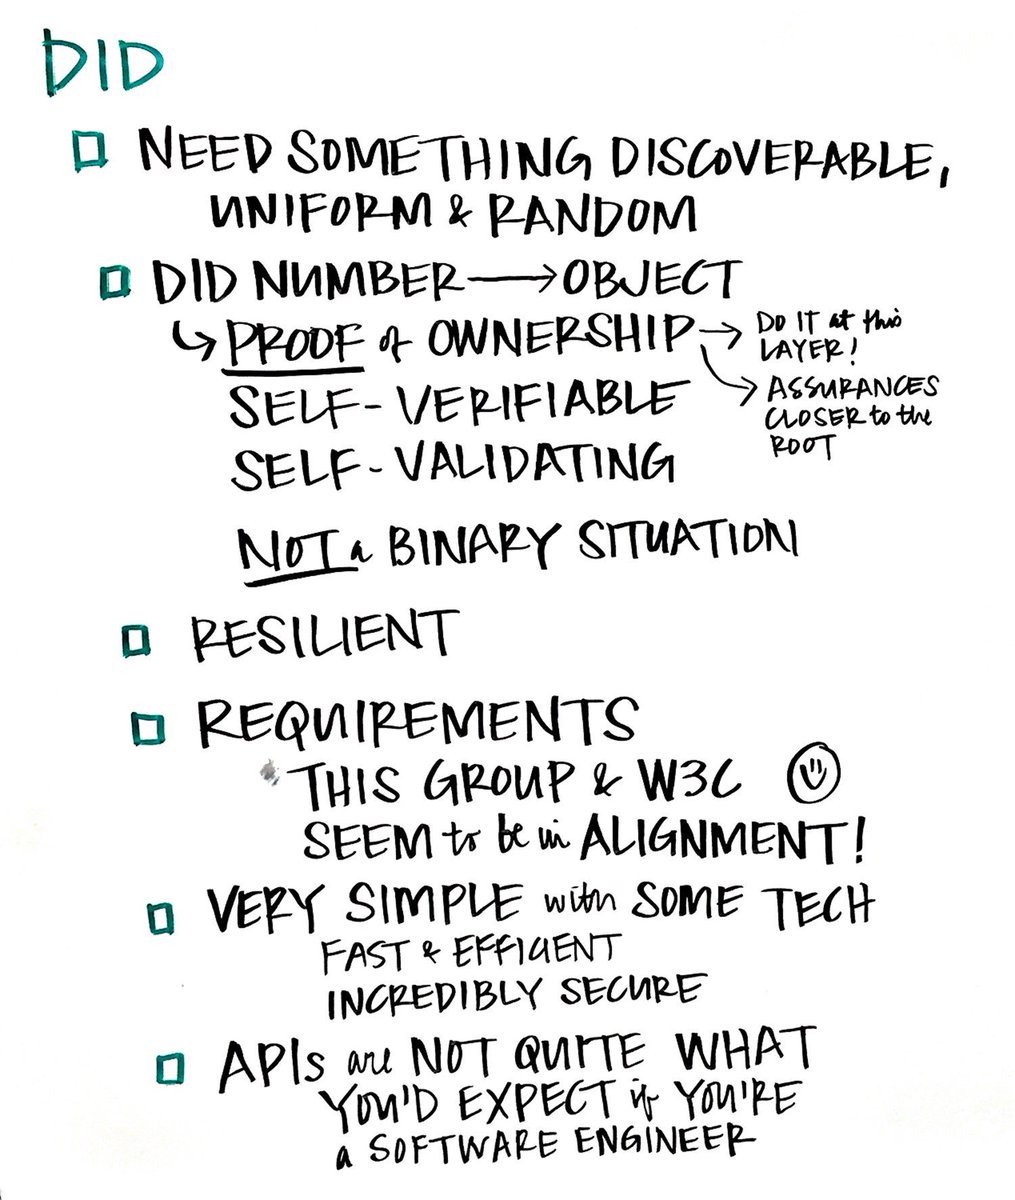 DID
NEED SOMETHING DISCOVERABLE,
UNIFORM & RANDOM
DID NUMBER → OBJECT
↳ PROOF of OWNERSHIP → DO IT at this
LAYER!
→ ASSURANCES
CLOSER to the
ROOT
SELF-VERIFIABLE
SELF-VALIDATING
NOT a BINARY SITUATION
RESILIENT
REQUIREMENTS
THIS GROUP & W3C
SEEM to be in ALIGNMENT!
VERY SIMPLE with SOME TECH
FAST & EFFICIENT
INCREDIBLY SECURE
APIs are NOT QUITE WHAT
YOU'D EXPECT if YOU'RE
a SOFTWARE ENGINEER